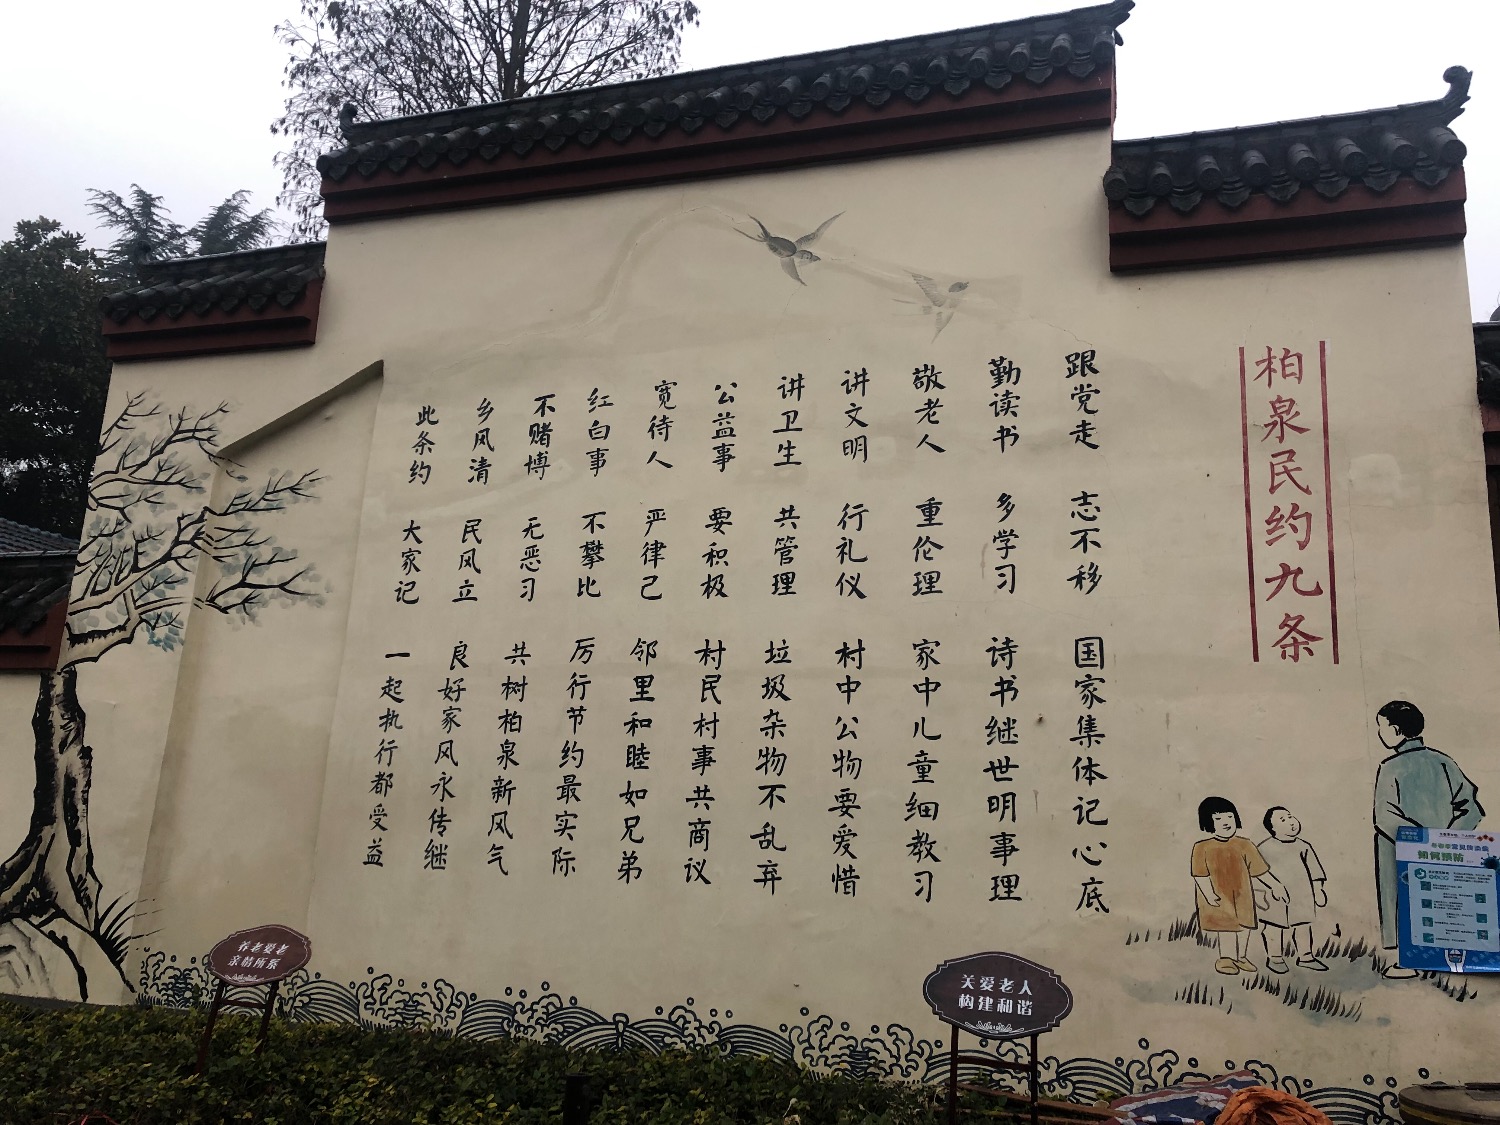 柏泉民约九条
跟党走 志不移 国家集体记心底
勤读书 多学习 诗书继世明事理
敬老人 重伦理 家中儿童细教习
讲文明 行礼仪 村中公物要爱惜
讲卫生 共管理 垃圾杂物不乱弃
公益事 要积极 村民村事共商议
宽待人 严律己 邻里和睦如兄弟
红白事 不攀比 厉行节约最实际
不赌博 无恶习 共树柏泉新风气
乡风清 民风立 良好家风永传继
此条约 大家记 一起执行都受益
养老爱老
亲情所系
关爱老人
构建和谐
如何预防